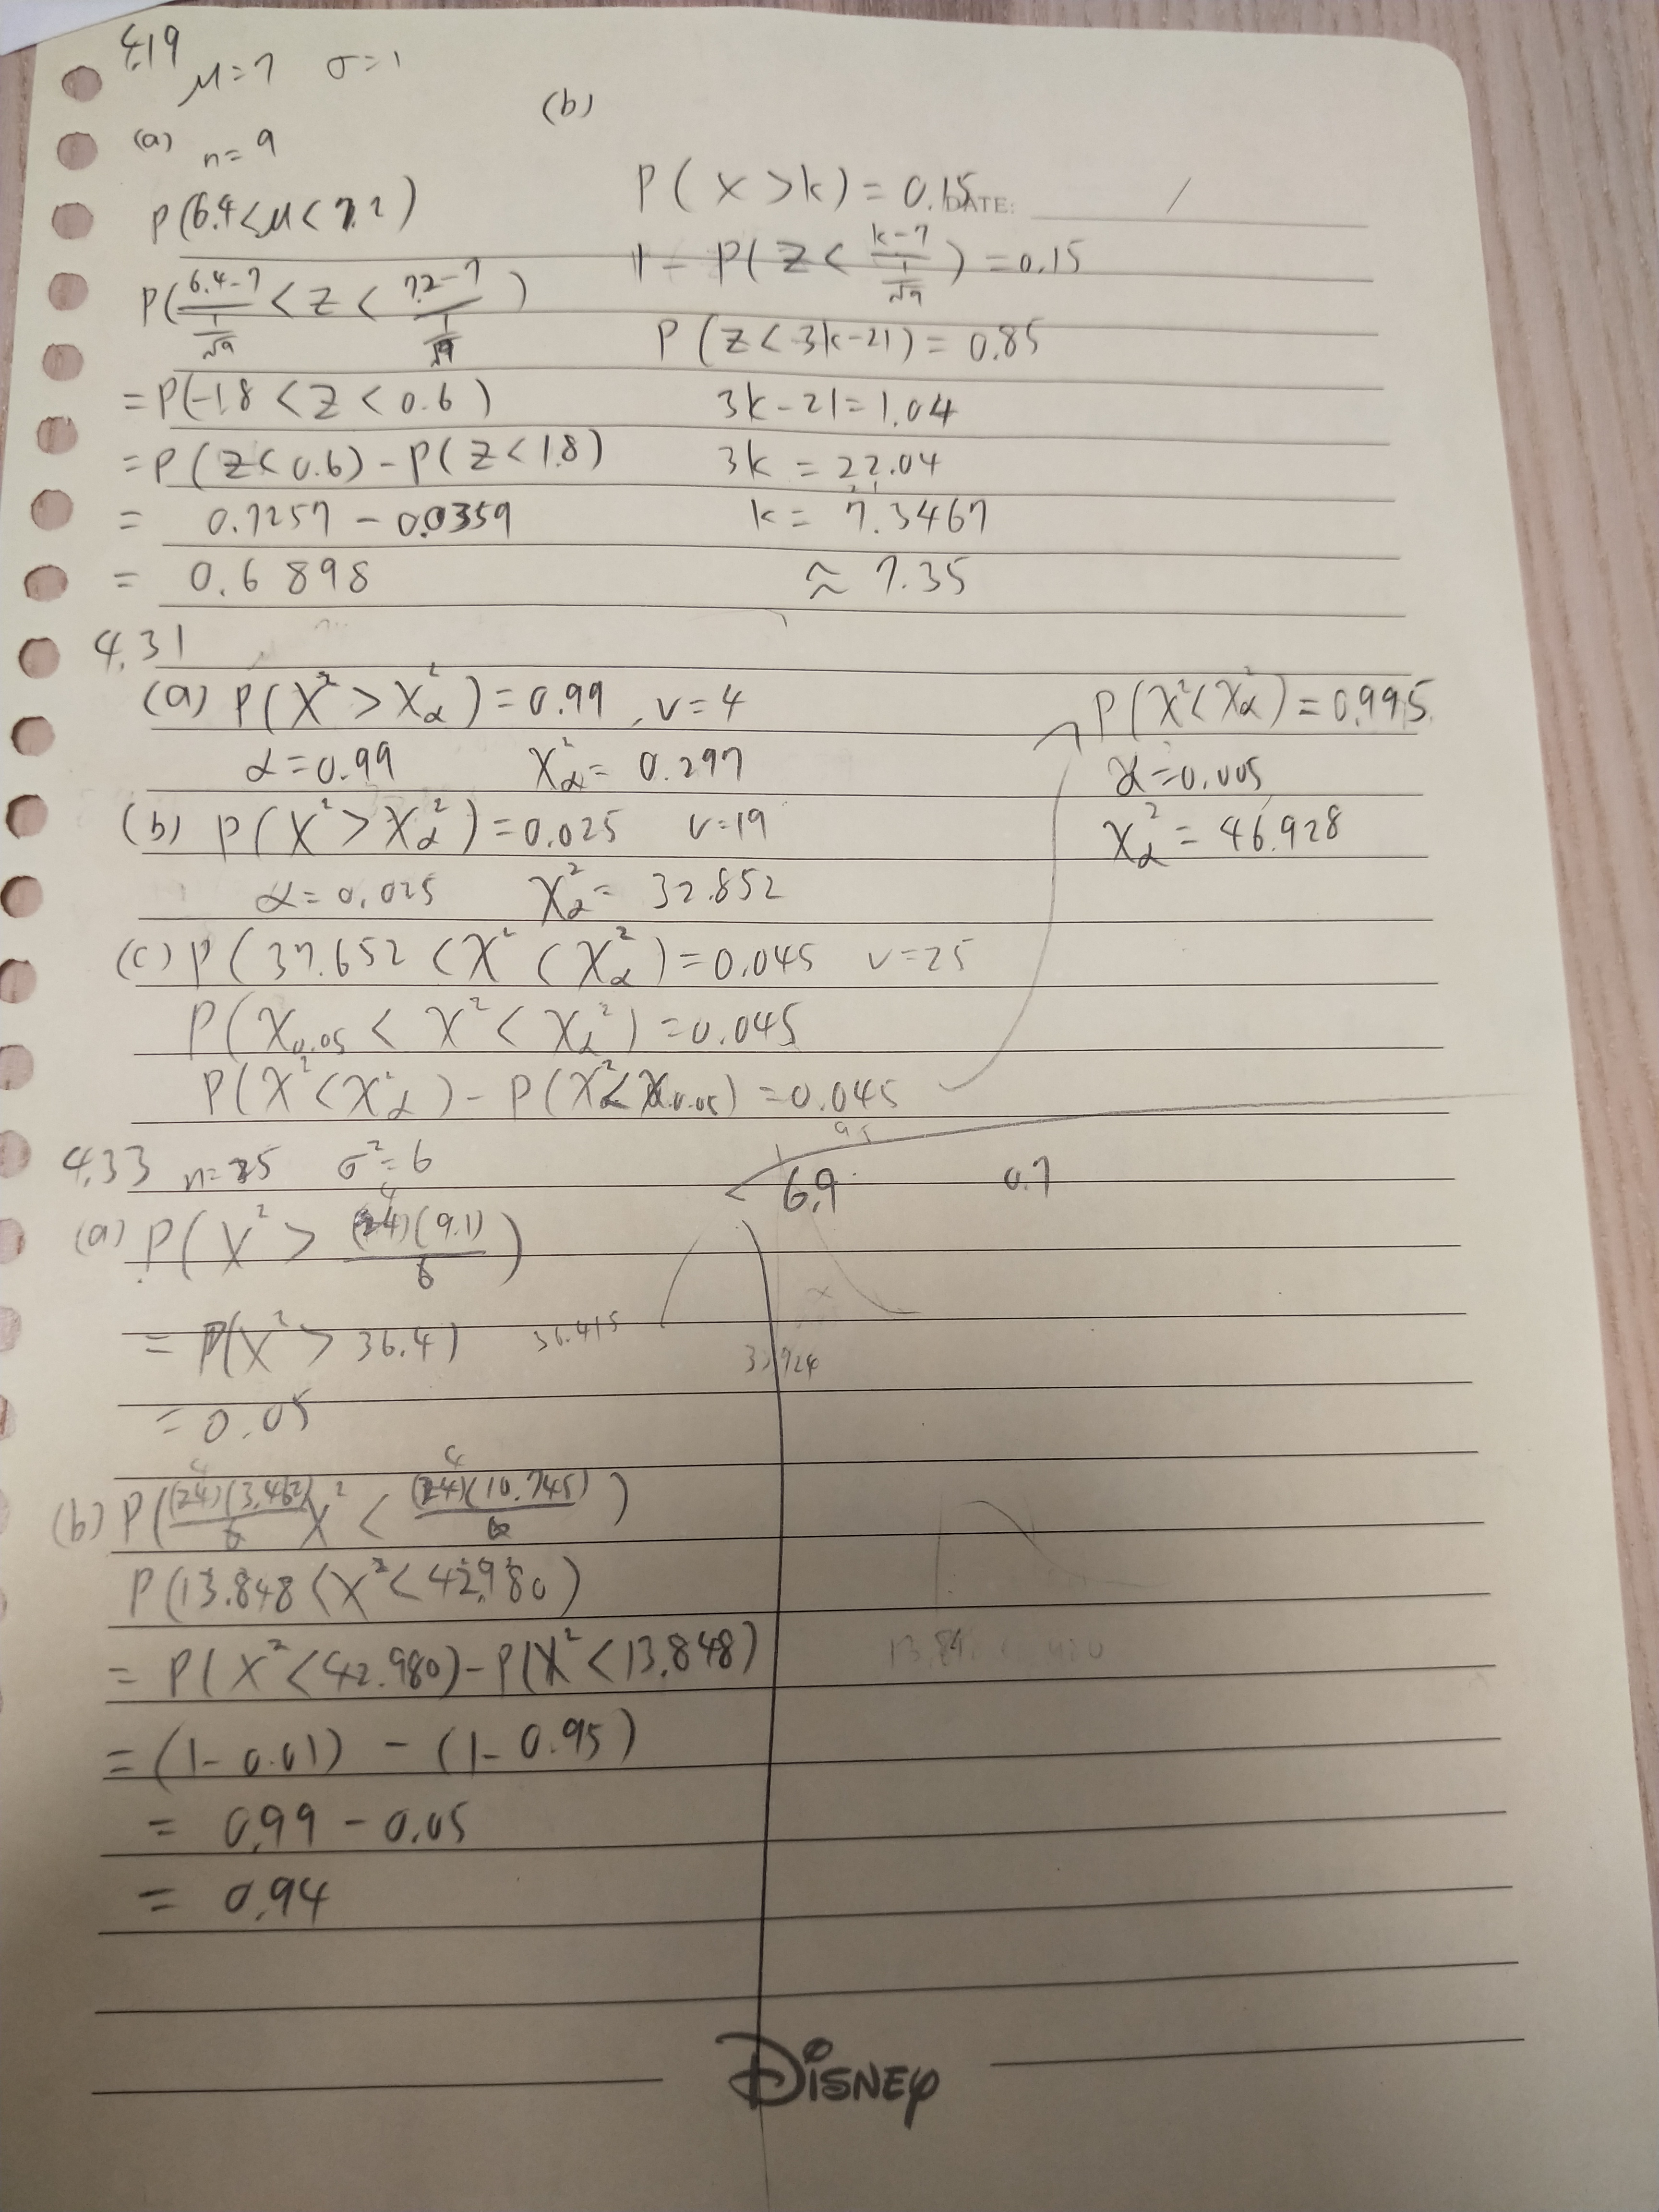 4.19
μ=7 σ=1
(a) n=9
P(6.4<μ<7.2)
P((6.4-7)/(1/√9) < Z < (7.2-7)/(1/√9))
=P(-1.8<Z<0.6)
=P(Z<0.6)-P(Z<1.8)
= 0.7257-0.0359
= 0.6898
(b)
P(X>k)=0.15
DATE: /
1-P(Z<(k-7)/(1/√9))=0.15
P(Z<3k-21)=0.85
3k-21=1.04
3k=22.04
k=7.3467
≈7.35
4.31
(a) P(X²>X²α)=0.99, v=4
α=0.99 X²α=0.297
(b) P(X²>X²α)=0.025 v=19
α=0.025 X²α=32.852
(c) P(37.652<X²<X²α)=0.045 v=25
P(X0.05<X²<X²α)=0.045
P(X²<X²α)-P(X²<X0.05)=0.045
P(X²<X²α)=0.995
α=0.005
X²α=46.928
4.33 n=25 σ²=6
6.9 0.7
(a) P(X²>(24)(9.1)/6)
=P(X²>36.4) 36.415
=0.05
(b) P((24)(3.462)/6 X²<(24)(10.745)/6)
P(13.848<X²<42.980)
=P(X²<42.980)-P(X²<13.848)
=(1-0.01)-(1-0.95)
= 0.99-0.05
= 0.94
DISNEY